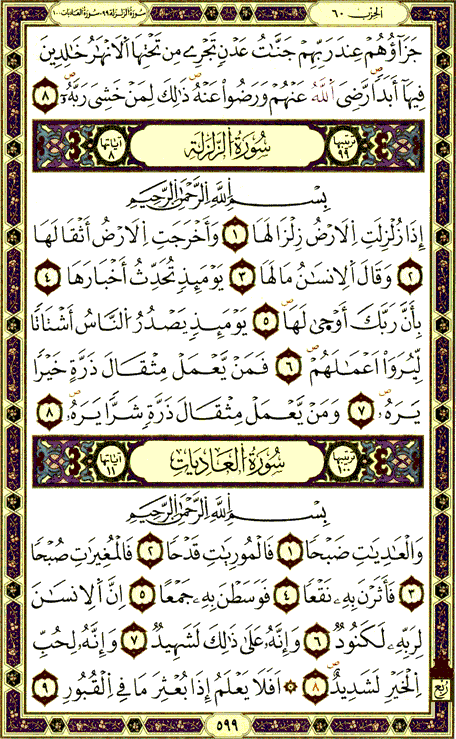 الحزب ٦٠
سورة الزلزلة ٩٩ - سورة العاديات ١٠٠
جَزَآؤُهُمْ عِندَ رَبِّهِمْ جَنَّٰتُ عَدْنٍ تَجْرِے مِن تَحْتِهَا اَلَانْهَٰرُ خَٰلِدِينَ
فِيهَآ أَبَداٗ رَّضِيَ اَللَّهُ عَنْهُمْ وَرَضُواْ عَنْهُ ذَٰلِكَ لِمَنْ خَشِيَ رَبَّهُۥ ٨
ترتيبها ٩٩ سُورَةُ الزَّلْزَلَةِ آياتها ٨
بِسْمِ اِللَّهِ اِلرَّحْمَٰنِ اِلرَّحِيمِ
إِذَا زُلْزِلَتِ اِلَارْضُ زِلْزَالَهَا ١ وَأَخْرَجَتِ اِلَارْضُ أَثْقَالَهَا
٢ وَقَالَ اَلِانسَٰنُ مَا لَهَا ٣ يَوْمَئِذٖ تُحَدِّثُ أَخْبَارَهَا ٤
بِأَنَّ رَبَّكَ أَوْحَىٰ لَهَا ٥ يَوْمَئِذٖ يَصْدُرُ اُلنَّاسُ أَشْتَاتاٗ
لِّيُرَوَاْ اَعْمَٰلَهُمْ ٦ فَمَنْ يَّعْمَلْ مِثْقَالَ ذَرَّةٍ خَيْراٗ
يَرَهُۥ ٧ وَمَنْ يَّعْمَلْ مِثْقَالَ ذَرَّةٖ شَرّاٗ يَرَهُۥ ٨
ترتيبها ١٠٠ سُورَةُ الْعَادِيَاتِ آياتها ١١
بِسْمِ اِللَّهِ اِلرَّحْمَٰنِ اِلرَّحِيمِ
وَالْعَٰدِيَٰتِ ضَبْحاٗ ١ فَالْمُورِيَٰتِ قَدْحاٗ ٢ فَالْمُغِيرَٰتِ صُبْحاٗ
٣ فَأَثَرْنَ بِهِۦ نَقْعاٗ ٤ فَوَسَطْنَ بِهِۦ جَمْعاً ٥ اِنَّ اَلِانسَٰنَ
لِرَبِّهِۦ لَكَنُودٞ ٦ وَإِنَّهُۥ عَلَىٰ ذَٰلِكَ لَشَهِيدٞ ٧ وَإِنَّهُۥ لِحُبِّ
اِلْخَيْرِ لَشَدِيدٌ ٨ ۞ اَفَلَا يَعْلَمُ إِذَا بُعْثِرَ مَا فِے اِلْقُبُورِ ٩
ربع
٥٩٩